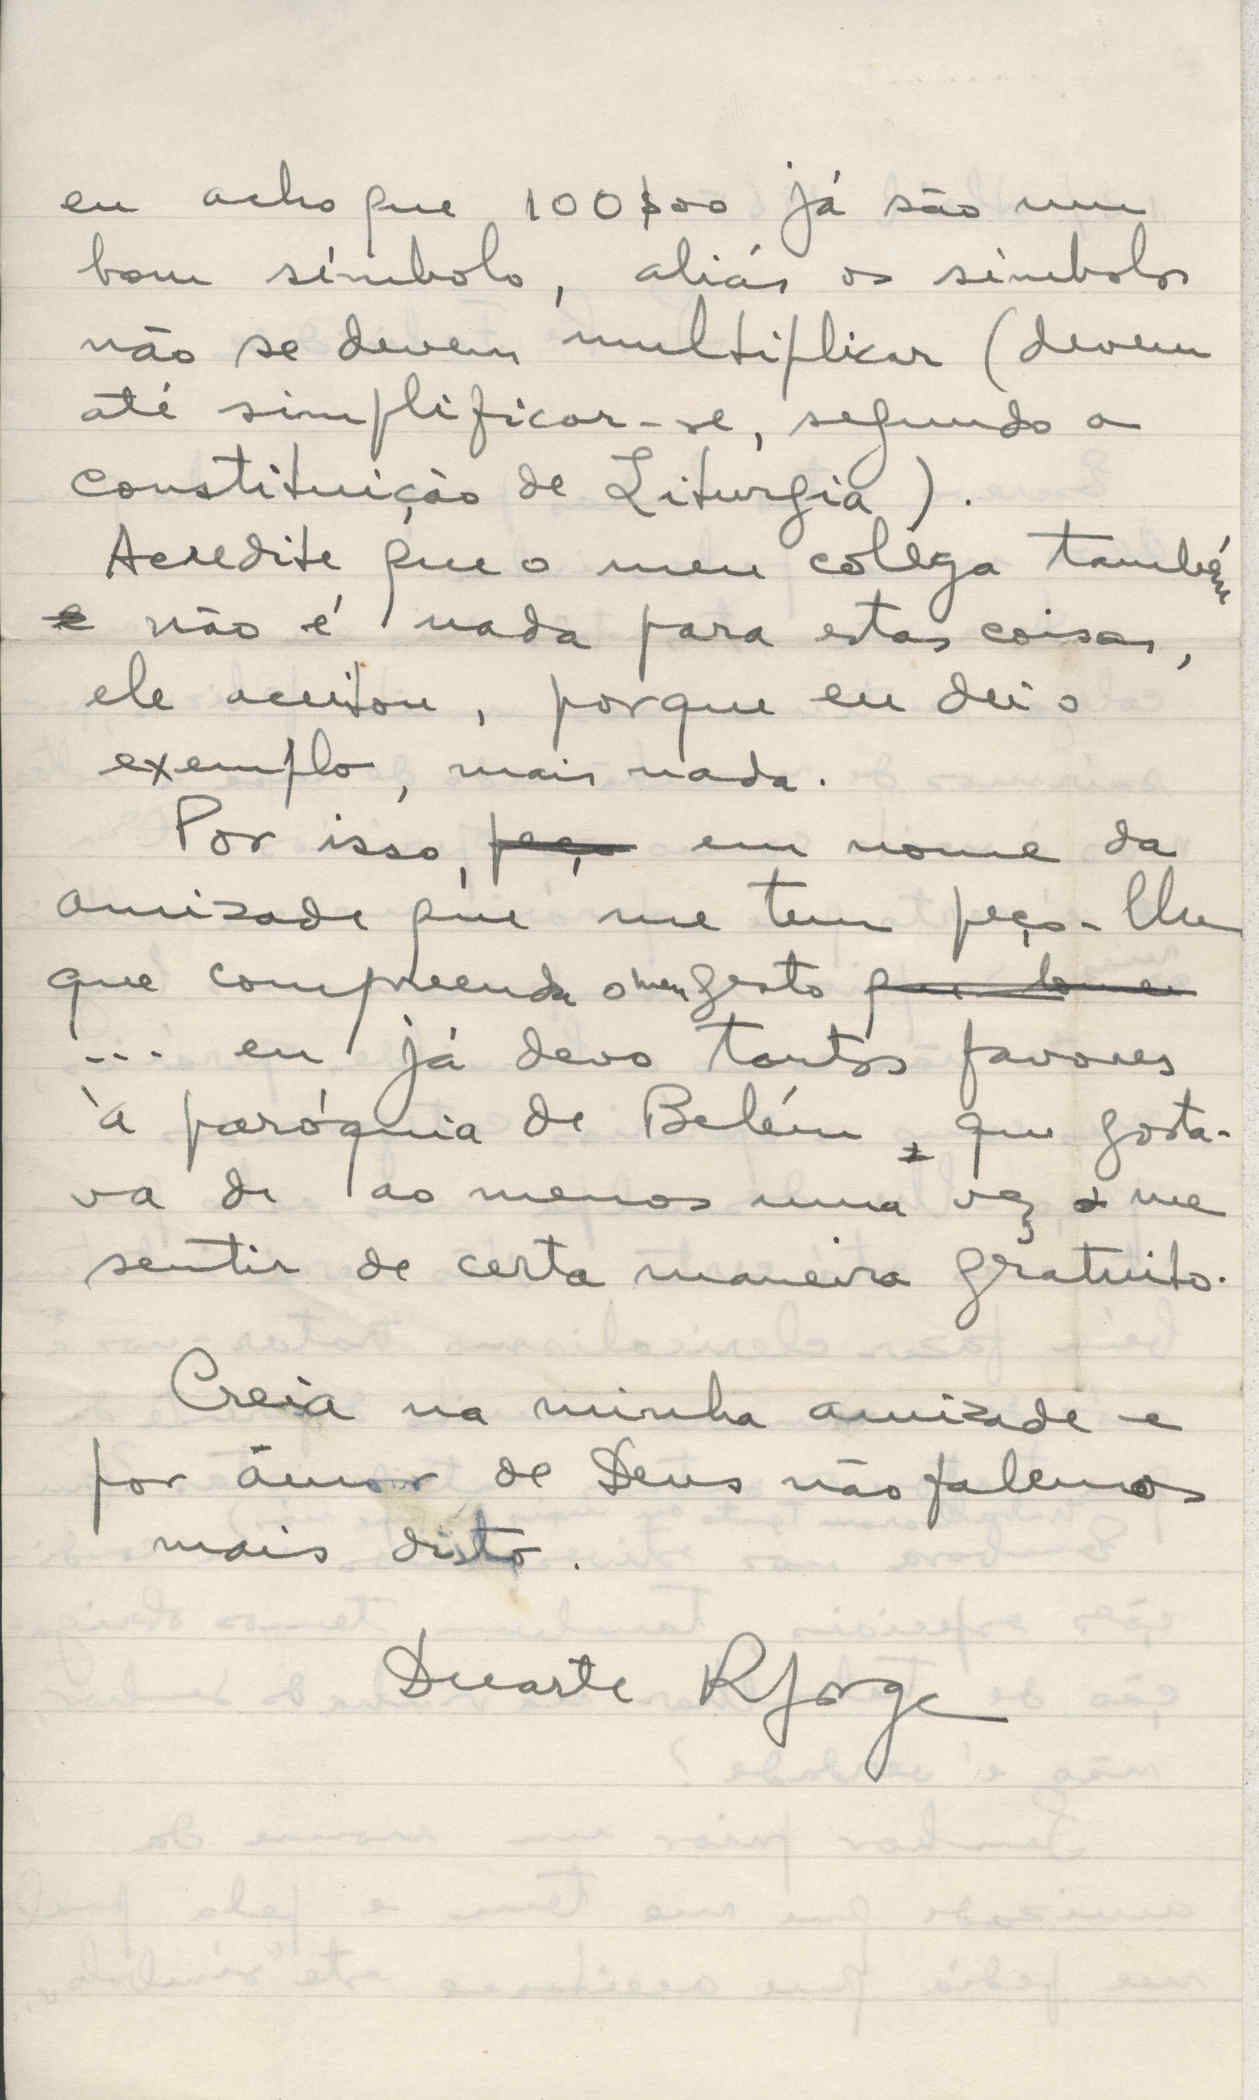 eu acho que 100$00 já são um
bom símbolo, aliás os símbolos
não se devem multiplicar (devem
até simplificar-se, segundo a
constituição de Liturgia).
Acredite que o meu colega também
não é nada para estas coisas,
ele aceitou, porque eu dei o
exemplo, mais nada.
Por isso, peço em nome da
amizade que me tem peço-lhe
que compreenda o meu gesto
... eu já devo tantos favores
à paróquia de Belém, que gosta-
va de ao menos uma vez me
sentir de certa maneira gratuito.
Creia na minha amizade e
por âmor de Deus não falemos
mais disto.
Duarte RJorge